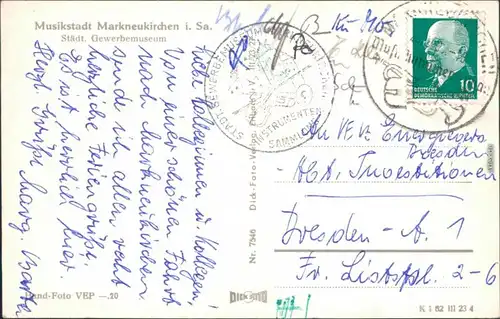 Musikstadt Markneukirchen i. Sa.
Städt. Gewerbemuseum
Liebe Kolleginnen u. Kollegen!
Von einer schönen Fahrt
nach Markneukirchen
sende ich allen recht
herzliche Feriengrüße.
Es ist herrlich hier.
Herzl. Grüße Marg.
INSTRUMENTEN
SAMML
Dick-Foto-Verlag
Nr. 7546
DEUTSCHE
DEMOKRATISCHE REPUBLIK
10
An VEV. Energievers.
Dresden
Abt. Investitionen
Dresden-A. 1
Fr. Listspl. 2-6
Hand-Foto VEP —.20
DICK FOTO
K 1 62 III 23 4